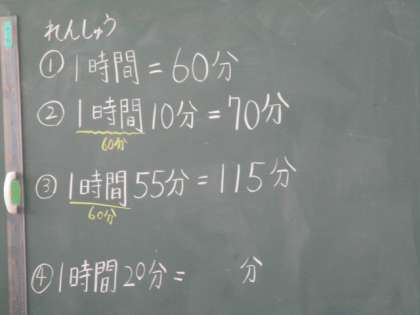 れんしゅう
① 1時間 = 60分
② 1時間10分 = 70分
60分
③ 1時間55分 = 115分
60分
④ 1時間20分 = 分